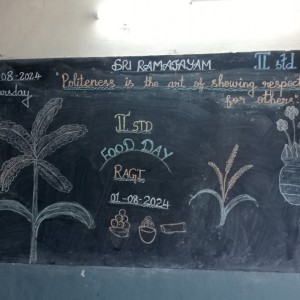 SRI RAMAJAYAM
II std
08-2024
"Politeness is the art of showing respect
for others
II STD
FOOD DAY
RAGI
01-08-2024